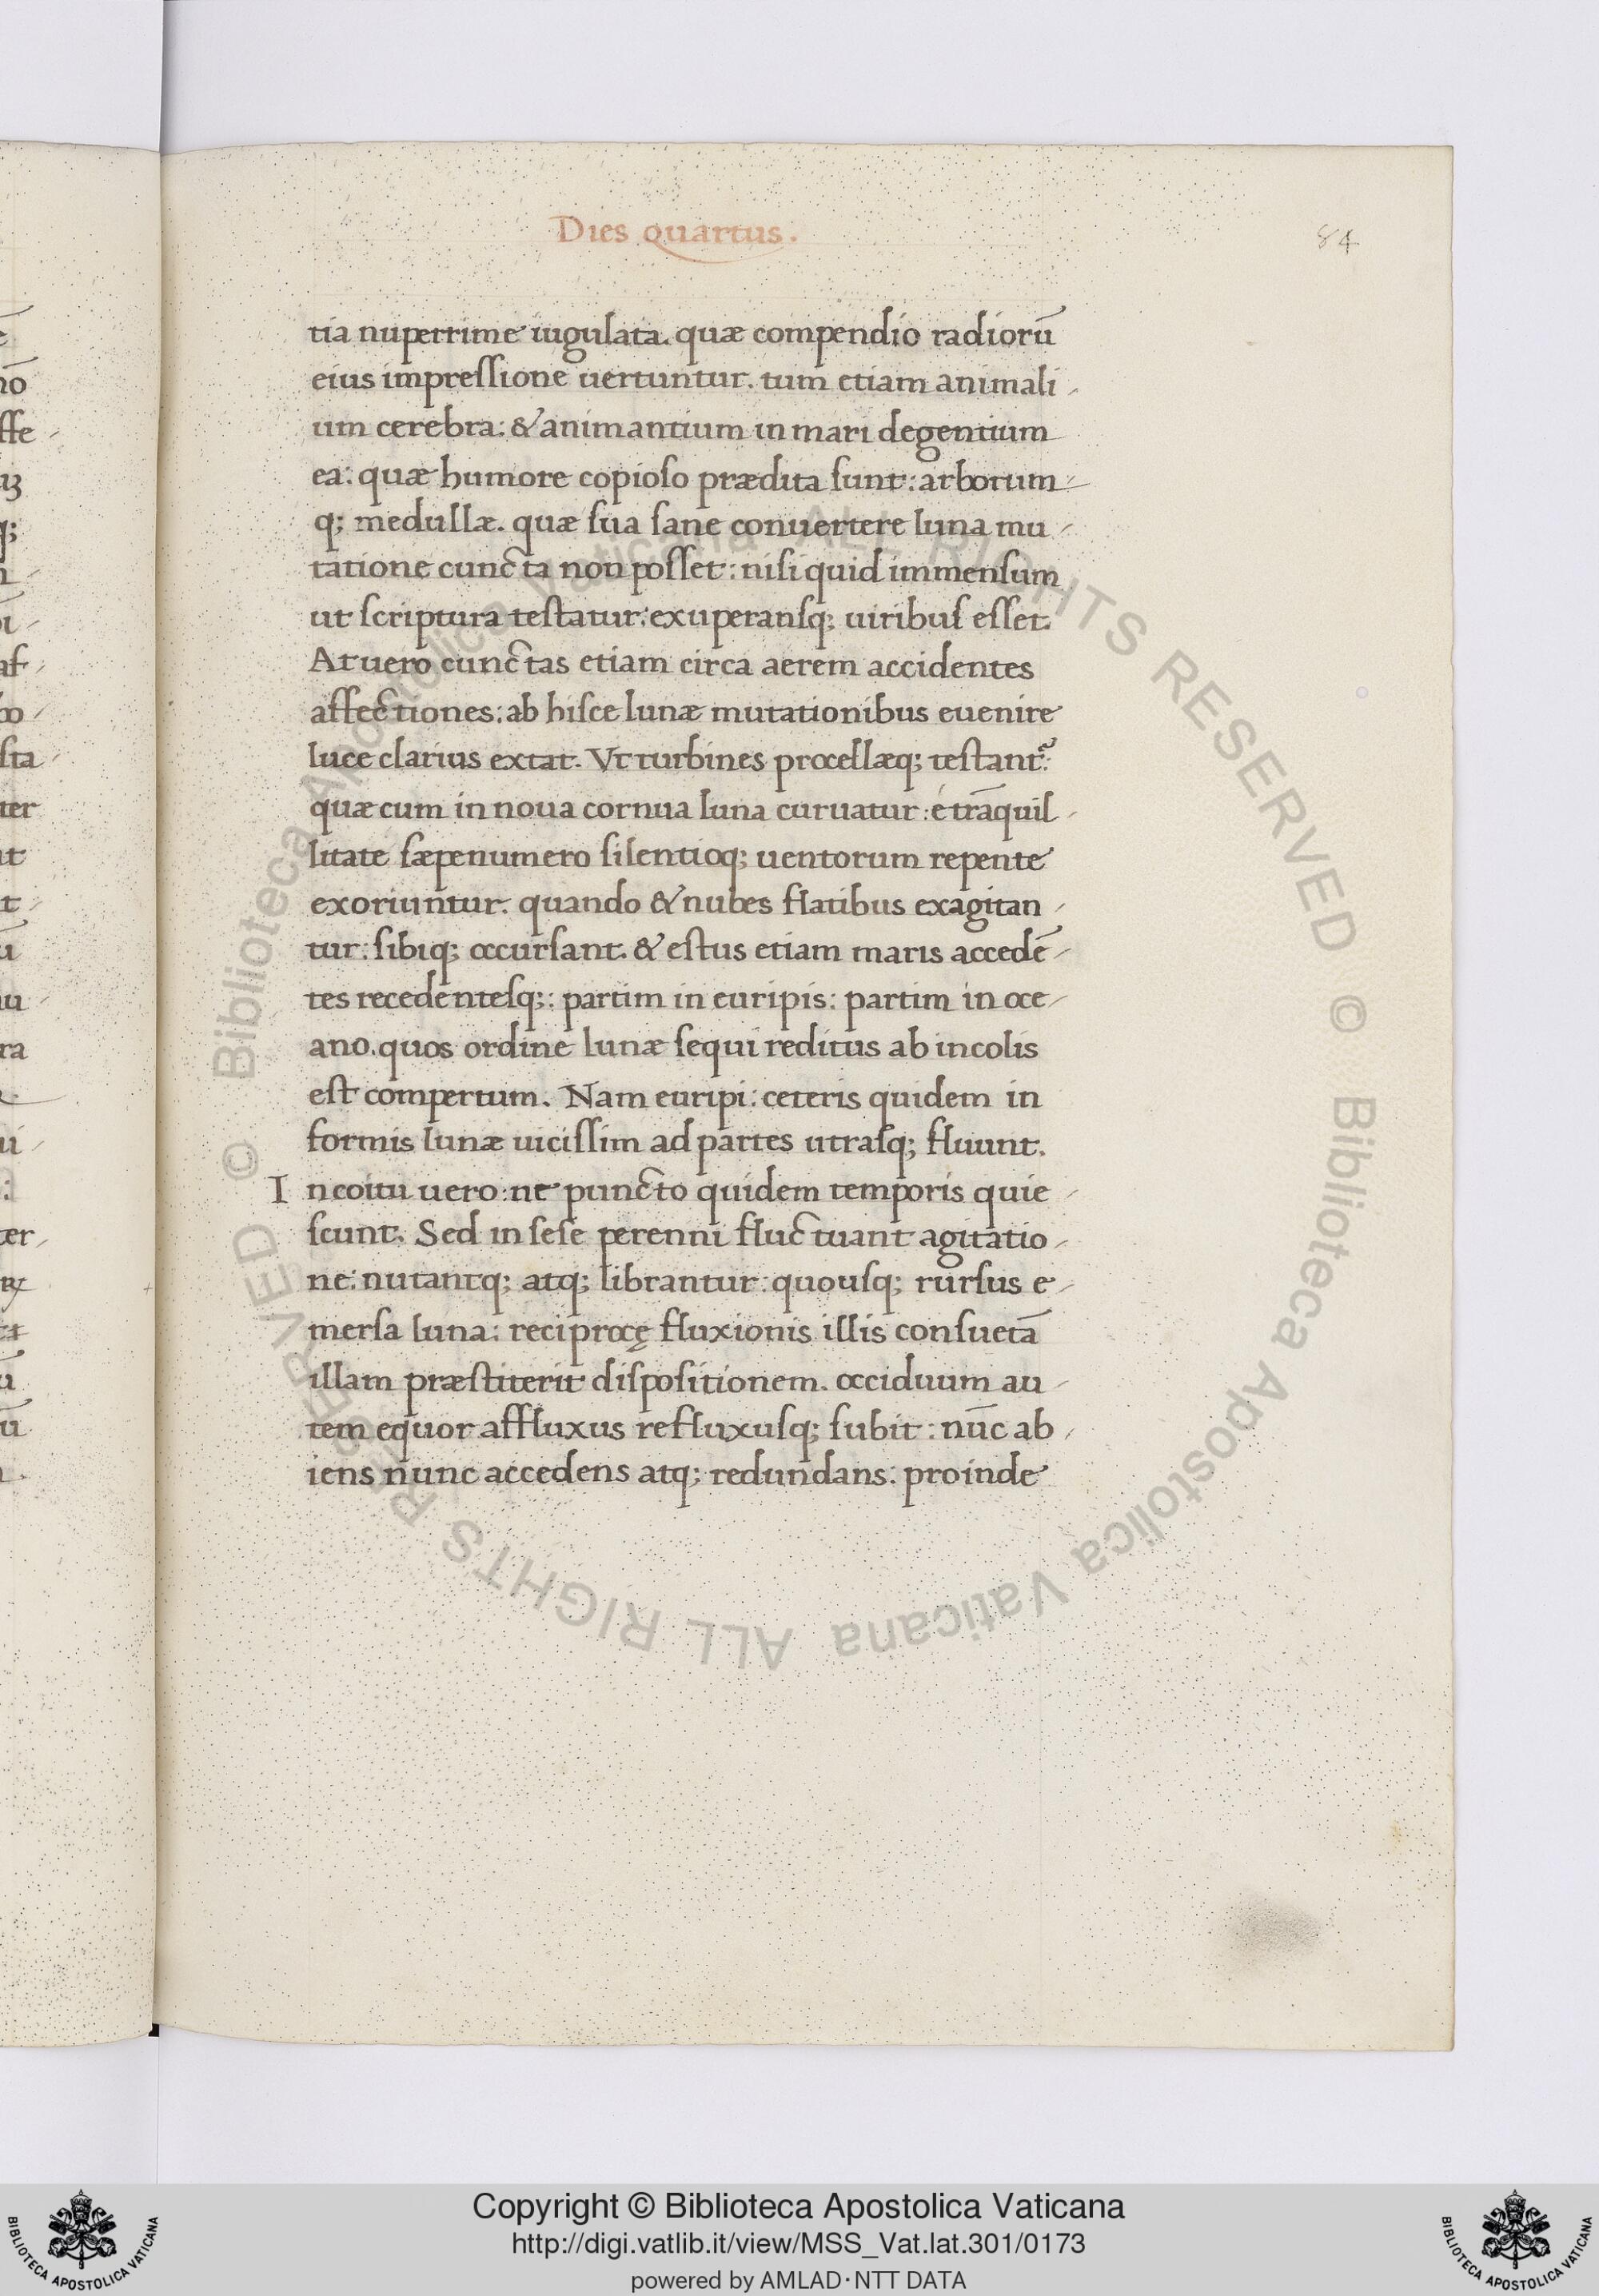 Dies quartus.
84
tia nuperrime iugulata. quæ compendio radiorū
eius impreſſione uertuntur. tum etiam animali-
um cerebra: & animantium in mari degentium
ea: quæ humore copioſo prædita ſunt: arborum-
q; medullæ. quæ ſua ſane conuertere luna mu-
tatione cuncta non poſſet: niſi quid immenſum
ut ſcriptura teſtatur: exuperanſq; uiribuſ eſſet.
At uero cunctas etiam circa aerem accidentes
affectiones: ab hiſce lunæ mutationibus euenire
luce clarius extat. Vt turbines procellæq; teſtant᷑:
quæ cum in noua cornua luna curuatur: é trāquil-
litate ſæpenumero ſilentioq; uentorum repente
exoriuntur. quando & nubes flatibus exagitan-
tur: ſibiq; occurſant. & eſtus etiam maris accedē-
tes recedenteſq;: partim in euripis: partim in oce-
ano. quos ordine lunæ ſequi reditus ab incolis
eſt compertum. Nam euripi: ceteris quidem in
formis lunæ uiciſſim ad partes utraſq; fluunt.
In coitu uero: ne puncto quidem temporis quie-
ſcunt. Sed in ſeſe perenni fluctuant agitatio-
ne: nutantq; atq; librantur: quouſq; rurſus e-
merſa luna: reciprocę fluxionis illis conſuetā
illam præſtiterit diſpoſitionem. occiduum au-
tem equor affluxus refluxuſq; ſubit: nūc ab-
iens nunc accedens atq; redundans: proinde
© Biblioteca Apostolica Vaticana ALL RIGHTS RESERVED © Biblioteca Apostolica Vaticana ALL RIGHTS RESERVED
Copyright © Biblioteca Apostolica Vaticana
http://digi.vatlib.it/view/MSS_Vat.lat.301/0173
powered by AMLAD·NTT DATA
BIBLIOTECA APOSTOLICA VATICANA
BIBLIOTECA APOSTOLICA VATICANA